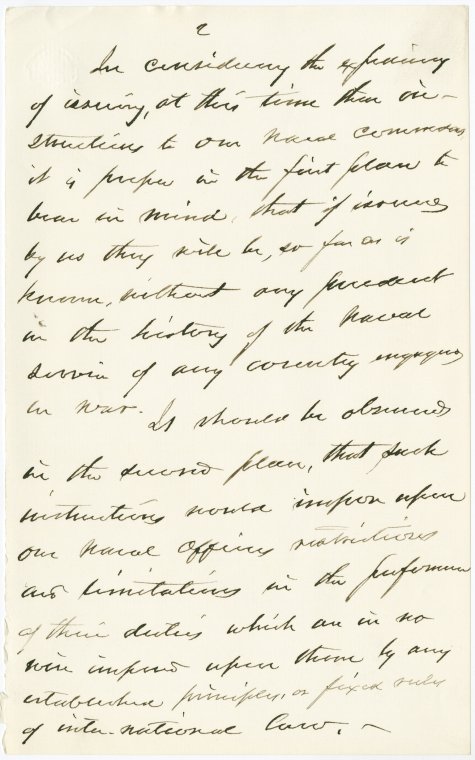 2
In considering the expediency
of issuing, at this time then in-
structions to our Naval commanders
it is proper in the first place to
bear in mind, that if issued
by us they will be, so far as is
known, without any precedent
in the history of the Naval
service of any country engaged
in war. It should be observed
in the second place, that such
instructions would impose upon
our Naval Officers restrictions
and limitations in the performance
of their duties which are in no
wise imposed upon them by any
established principles, or fixed rules
of inter-national law. —